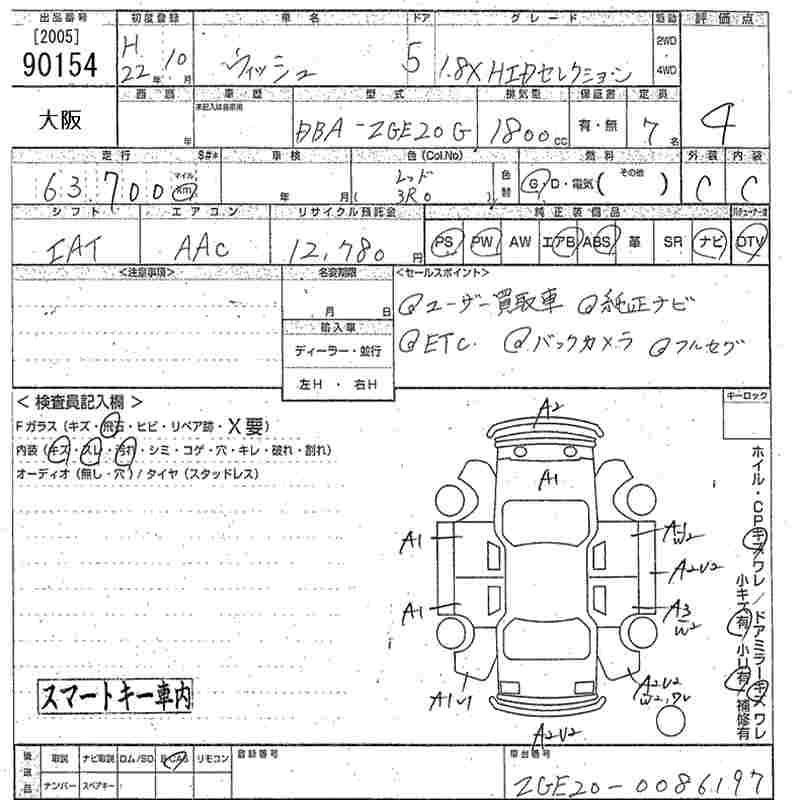 出品番号 初度登録 車名 ドア グレード 駆動 評価点
[2005] 90154 H22年10月 ウィッシュ 5 1.8X HIDセレクション 2WD・4WD 4
大阪 車歴 未記入は自家用 型式 排気量 保証書 定員
年 DBA-ZGE20G 1800cc 有・無 7名
走行 S#* 車検 色(Col.No) 色替 燃料 外装 内装
63,700 マイル km 年 月 レッド (3R0) G・D・電気( その他 ) C C
シフト エアコン リサイクル預託金 純正装備品
IAT AAC 12,780円 PS PW AW エアB ABS 革 SR ナビ DTV
<注意事項> 名変期限 <セールスポイント>
月 日 ユーザー買取車 純正ナビ
輸入車 ETC. バックカメラ フルセグ
ディーラー・並行
左H・右H
<検査員記入欄> キーロック
Fガラス(キズ・飛石・ヒビ・リペア跡・X要)
内装(キズ・スレ・汚れ・シミ・コゲ・穴・キレ・破れ・割れ)
オーディオ(無し・穴)/タイヤ(スタッドレス)
A2
A1
A1 A1 W2
A2U2
A1 A3 W2
A1U1 A2U2 W2,
A2U2
ホイル・CPキズワレ/ドアミラーキズワレ
小キズ有 小U有 補修有
スマートキー車内
後送品 取説 ナビ取説 ロム/SD B-CAS リモコン 登録番号 車台番号
ナンバー スペアキー ZGE20-0086197